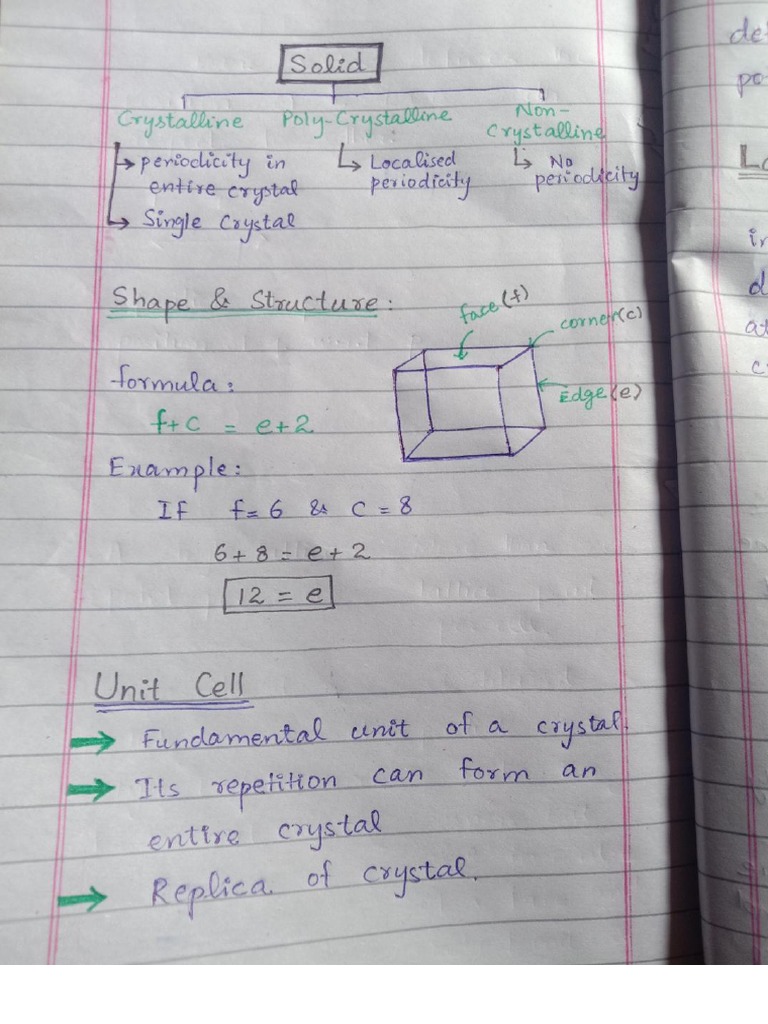 Solid
Crystalline Poly-Crystalline Non-
Crystalline
↳ periodicity in
entire crystal
↳ Single Crystal
↳ Localised
periodicity
↳ No
periodicity
Shape & Structure:
face(f)
corner(c)
Edge(e)
formula:
f+c = e+2
Example:
If f=6 & c=8
6+8 = e+2
12 = e
Unit Cell
→ Fundamental unit of a crystal.
→ Its repetition can form an
entire crystal
→ Replica of crystal.